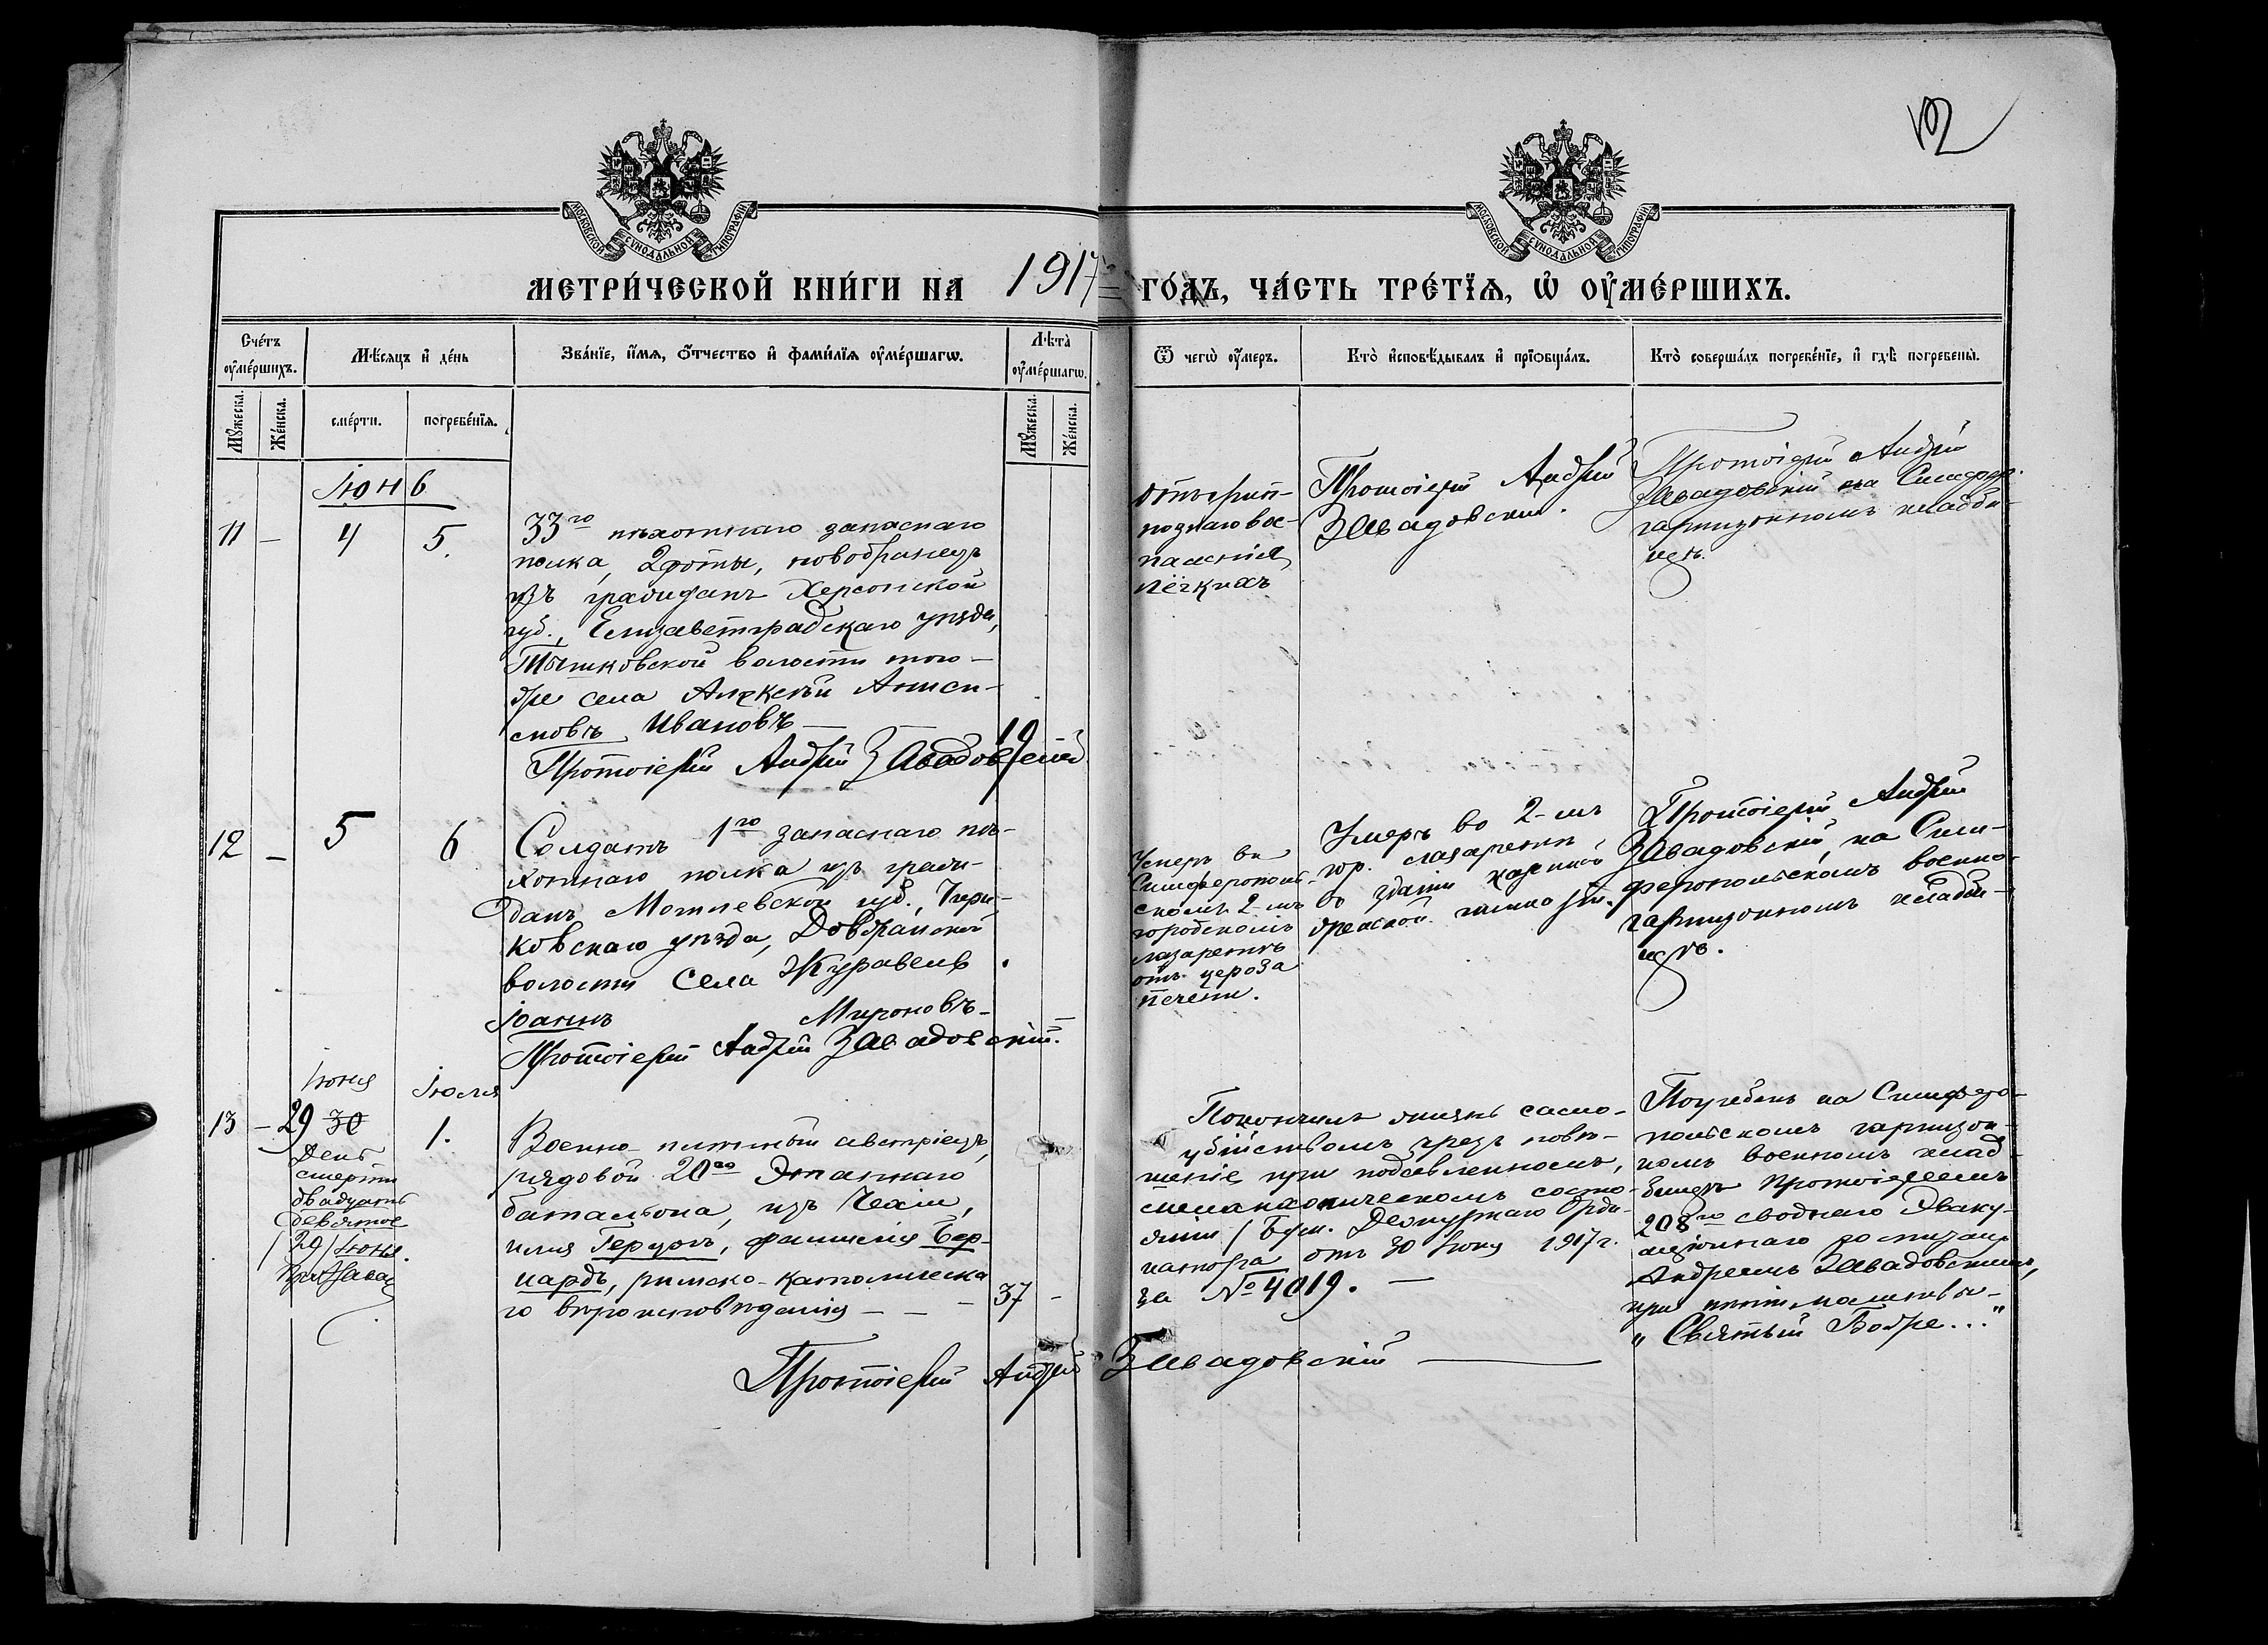 102
МОСКОВСКОЙ СУНОДАЛЬНОЙ ТИПОГРАФІИ
МОСКОВСКОЙ СУНОДАЛЬНОЙ ТИПОГРАФІИ
МЕТРИ́ЧЕСКОЙ КНИ́ГИ НА 1917 ГО́ДЪ, ЧА́СТЬ ТРЕ́ТЇѦ, Ѡ ОУМЕ́РШИХЪ.
Сче́тъ оуме́ршихъ.
Мѣсяцъ и де́нь
Зва́нїе, и́мя, о́тчество и фами́лїя оуме́ршагѡ.
Лѣта̀ оуме́ршагѡ.
Ѿ чегѡ̀ оу́меръ.
Кто̀ исповѣ́дывалъ и прїѡбща́лъ.
Кто̀ соверша́лъ погребе́нїе, и гдѣ̀ погребены̀.
Мꙋжеска.
Же́нска.
сме́рти.
погребе́нїя.
Мꙋжеска.
Же́нска.
Іюнь
11 — 4 5.
33го пѣхотнаго запаснаго
полка, 2 роты, новобранецъ
изъ гражданъ Херсонской
губ., Елизаветградскаго уѣзда,
Тышковской волости того-
же села Алексѣй Аниси-
мовъ Ивановъ —
19
Протоіерей Андрей Завадовскій
отъ крип-
познаго вос-
паленія
лёгкихъ
Протоіерей Андрей
Завадовскій.
Протоіерей Андрей
Завадовскій на Симфер.
гарнизонномъ кладби-
щѣ.
12 — 5 6
Солдатъ 1го запаснаго пѣ-
хотнаго полка изъ граж-
данъ Могилевской губ., Чери-
ковскаго уѣзда, Довбранской
волости села Журавель
Іоаннъ Мироновъ —
Протоіерей Андрей Завадовскій.
Умеръ въ
Симферополь-
скомъ 2-мъ
городскомъ
лазаретѣ
отъ цероза
печени.
Умеръ во 2-мъ
гор. лазаретѣ
въ зданіи казенной
женской гимназіи.
Протоіерей Андрей
Завадовскій, на Сим-
феропольскомъ военно-
гарнизонномъ кладби-
щѣ.
Іюня Іюля
13 — 29 30 1.
День
смерти
двадцать
девятое
/29/ Іюня.
Военно-плѣнный австріецъ,
рядовой 20го Этапнаго
баталіона, изъ Чехіи,
имя Герцогъ, фамилія Бер-
нардъ, римско-католическа
го вѣроисповѣданія — — — 37 —
Покончилъ жизнь само-
убійствомъ чрезъ повѣ-
шеніе при подавленномъ,
меланхолическомъ состо-
яніи /Бум. Дежурнаго Орди-
натора отъ 30 Іюня 1917 г.
за № 4019. —
Погребенъ на Симферо-
польскомъ гарнизон-
номъ военномъ клад-
бищѣ Протоіереемъ
208го своднаго Эваку-
аціоннаго госпиталя
Андреемъ Завадовскимъ,
при пѣніи молитвы —
„Святый Боже..."
Протоіерей Андрей Завадовскій —